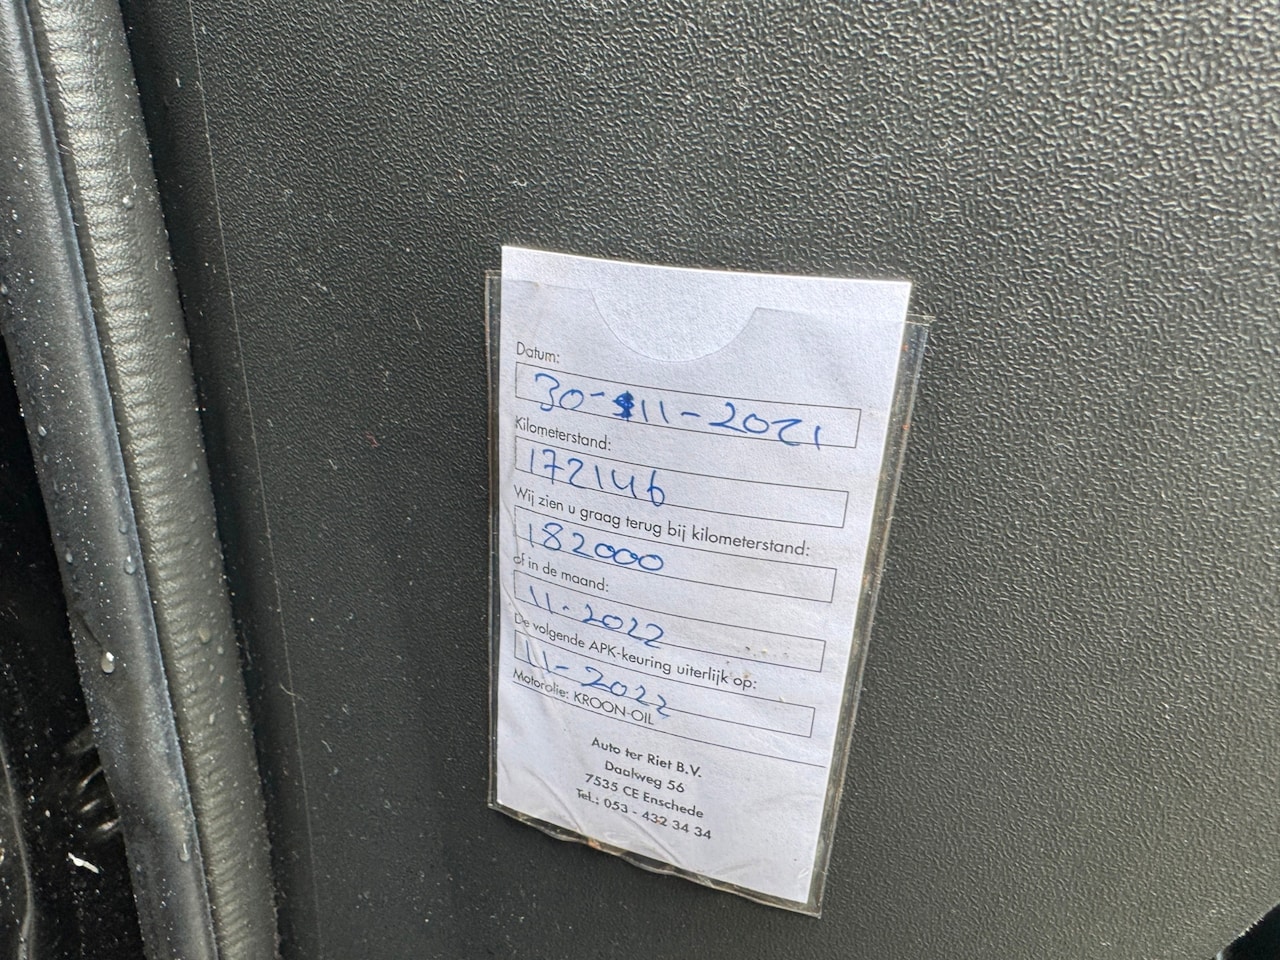 Datum:
30-11-2021
Kilometerstand:
172146
Wij zien u graag terug bij kilometerstand:
182000
of in de maand:
11-2022
De volgende APK-keuring uiterlijk op:
11-2022
Motorolie: KROON-OIL
Auto ter Riet B.V.
Daalweg 56
7535 CE Enschede
Tel.: 053 - 432 34 34